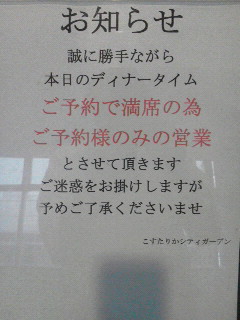 お知らせ
誠に勝手ながら
本日のディナータイム
ご予約で満席の為
ご予約様のみの営業
とさせて頂きます
ご迷惑をお掛けしますが
予めご了承くださいませ
こすたりかシティガーデン